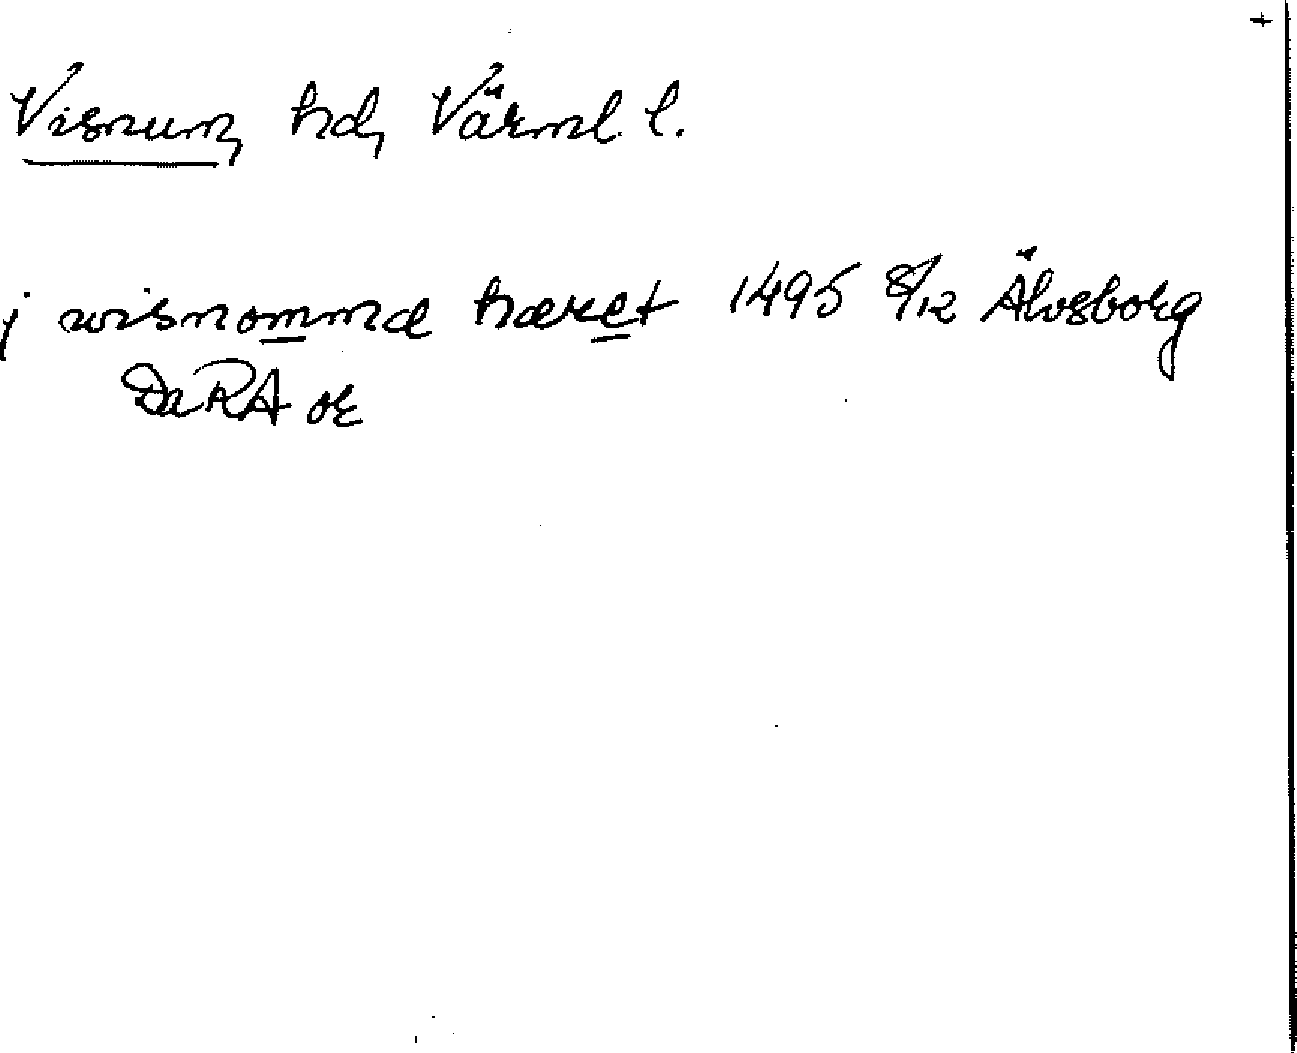 +
Visnum, hd, Värml. l.
j wisnommæ hæret 1495 8/12 Älvsborg
DaRA or